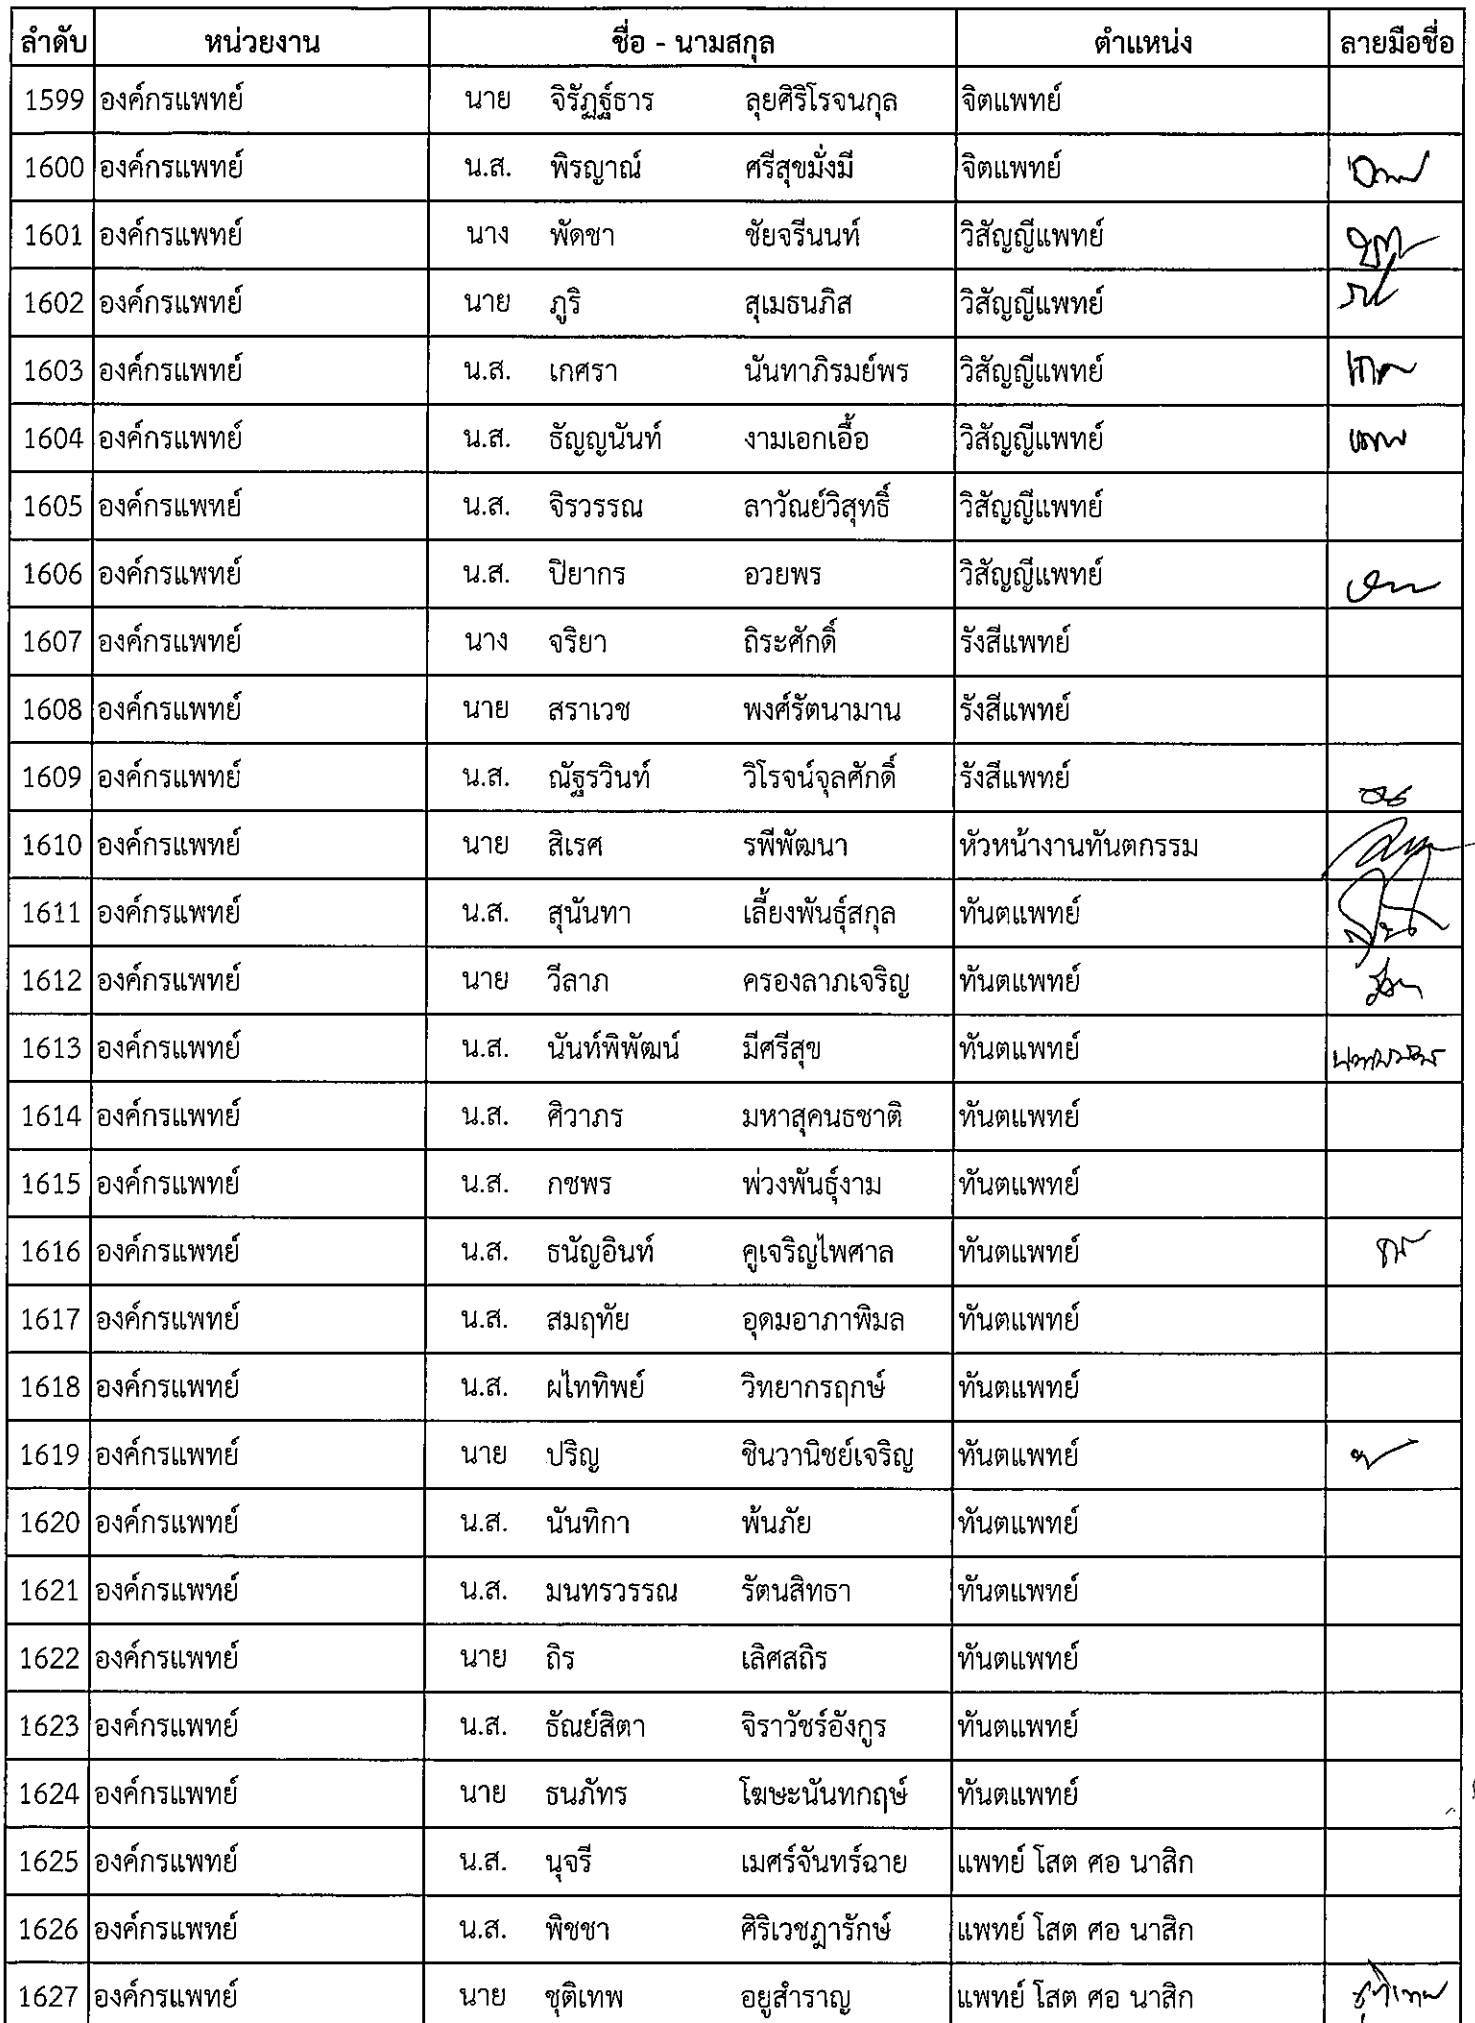 ลำดับ หน่วยงาน ชื่อ - นามสกุล ตำแหน่ง ลายมือชื่อ
1599 องค์กรแพทย์ นาย จิรัฏฐ์ธาร ลุยศิริโรจนกุล จิตแพทย์
1600 องค์กรแพทย์ น.ส. พิรญาณ์ ศรีสุขมั่งมี จิตแพทย์
1601 องค์กรแพทย์ นาง พัดชา ชัยจรีนนท์ วิสัญญีแพทย์
1602 องค์กรแพทย์ นาย ภูริ สุเมธนภิส วิสัญญีแพทย์
1603 องค์กรแพทย์ น.ส. เกศรา นันทาภิรมย์พร วิสัญญีแพทย์
1604 องค์กรแพทย์ น.ส. ธัญญนันท์ งามเอกเอื้อ วิสัญญีแพทย์
1605 องค์กรแพทย์ น.ส. จิรวรรณ ลาวัณย์วิสุทธิ์ วิสัญญีแพทย์
1606 องค์กรแพทย์ น.ส. ปิยากร อวยพร วิสัญญีแพทย์
1607 องค์กรแพทย์ นาง จริยา ถิระศักดิ์ รังสีแพทย์
1608 องค์กรแพทย์ นาย สราเวช พงศ์รัตนามาน รังสีแพทย์
1609 องค์กรแพทย์ น.ส. ณัฐรวินท์ วิโรจน์จุลศักดิ์ รังสีแพทย์
1610 องค์กรแพทย์ นาย สิเรศ รพีพัฒนา หัวหน้างานทันตกรรม
1611 องค์กรแพทย์ น.ส. สุนันทา เลี้ยงพันธุ์สกุล ทันตแพทย์
1612 องค์กรแพทย์ นาย วีลาภ ครองลาภเจริญ ทันตแพทย์
1613 องค์กรแพทย์ น.ส. นันท์พิพัฒน์ มีศรีสุข ทันตแพทย์
1614 องค์กรแพทย์ น.ส. ศิวาภร มหาสุคนธชาติ ทันตแพทย์
1615 องค์กรแพทย์ น.ส. กชพร พ่วงพันธุ์งาม ทันตแพทย์
1616 องค์กรแพทย์ น.ส. ธนัญอินท์ คูเจริญไพศาล ทันตแพทย์
1617 องค์กรแพทย์ น.ส. สมฤทัย อุดมอาภาพิมล ทันตแพทย์
1618 องค์กรแพทย์ น.ส. ผไททิพย์ วิทยากรฤกษ์ ทันตแพทย์
1619 องค์กรแพทย์ นาย ปริญ ชินวานิชย์เจริญ ทันตแพทย์
1620 องค์กรแพทย์ น.ส. นันทิกา พ้นภัย ทันตแพทย์
1621 องค์กรแพทย์ น.ส. มนทรวรรณ รัตนสิทธา ทันตแพทย์
1622 องค์กรแพทย์ นาย ถิร เลิศสถิร ทันตแพทย์
1623 องค์กรแพทย์ น.ส. ธัณย์สิตา จิราวัชร์อังกูร ทันตแพทย์
1624 องค์กรแพทย์ นาย ธนภัทร โฆษะนันทกฤษ์ ทันตแพทย์
1625 องค์กรแพทย์ น.ส. นุจรี เมศร์จันทร์ฉาย แพทย์ โสต ศอ นาสิก
1626 องค์กรแพทย์ น.ส. พิชชา ศิริเวชฎารักษ์ แพทย์ โสต ศอ นาสิก
1627 องค์กรแพทย์ นาย ชุติเทพ อยูสำราญ แพทย์ โสต ศอ นาสิก